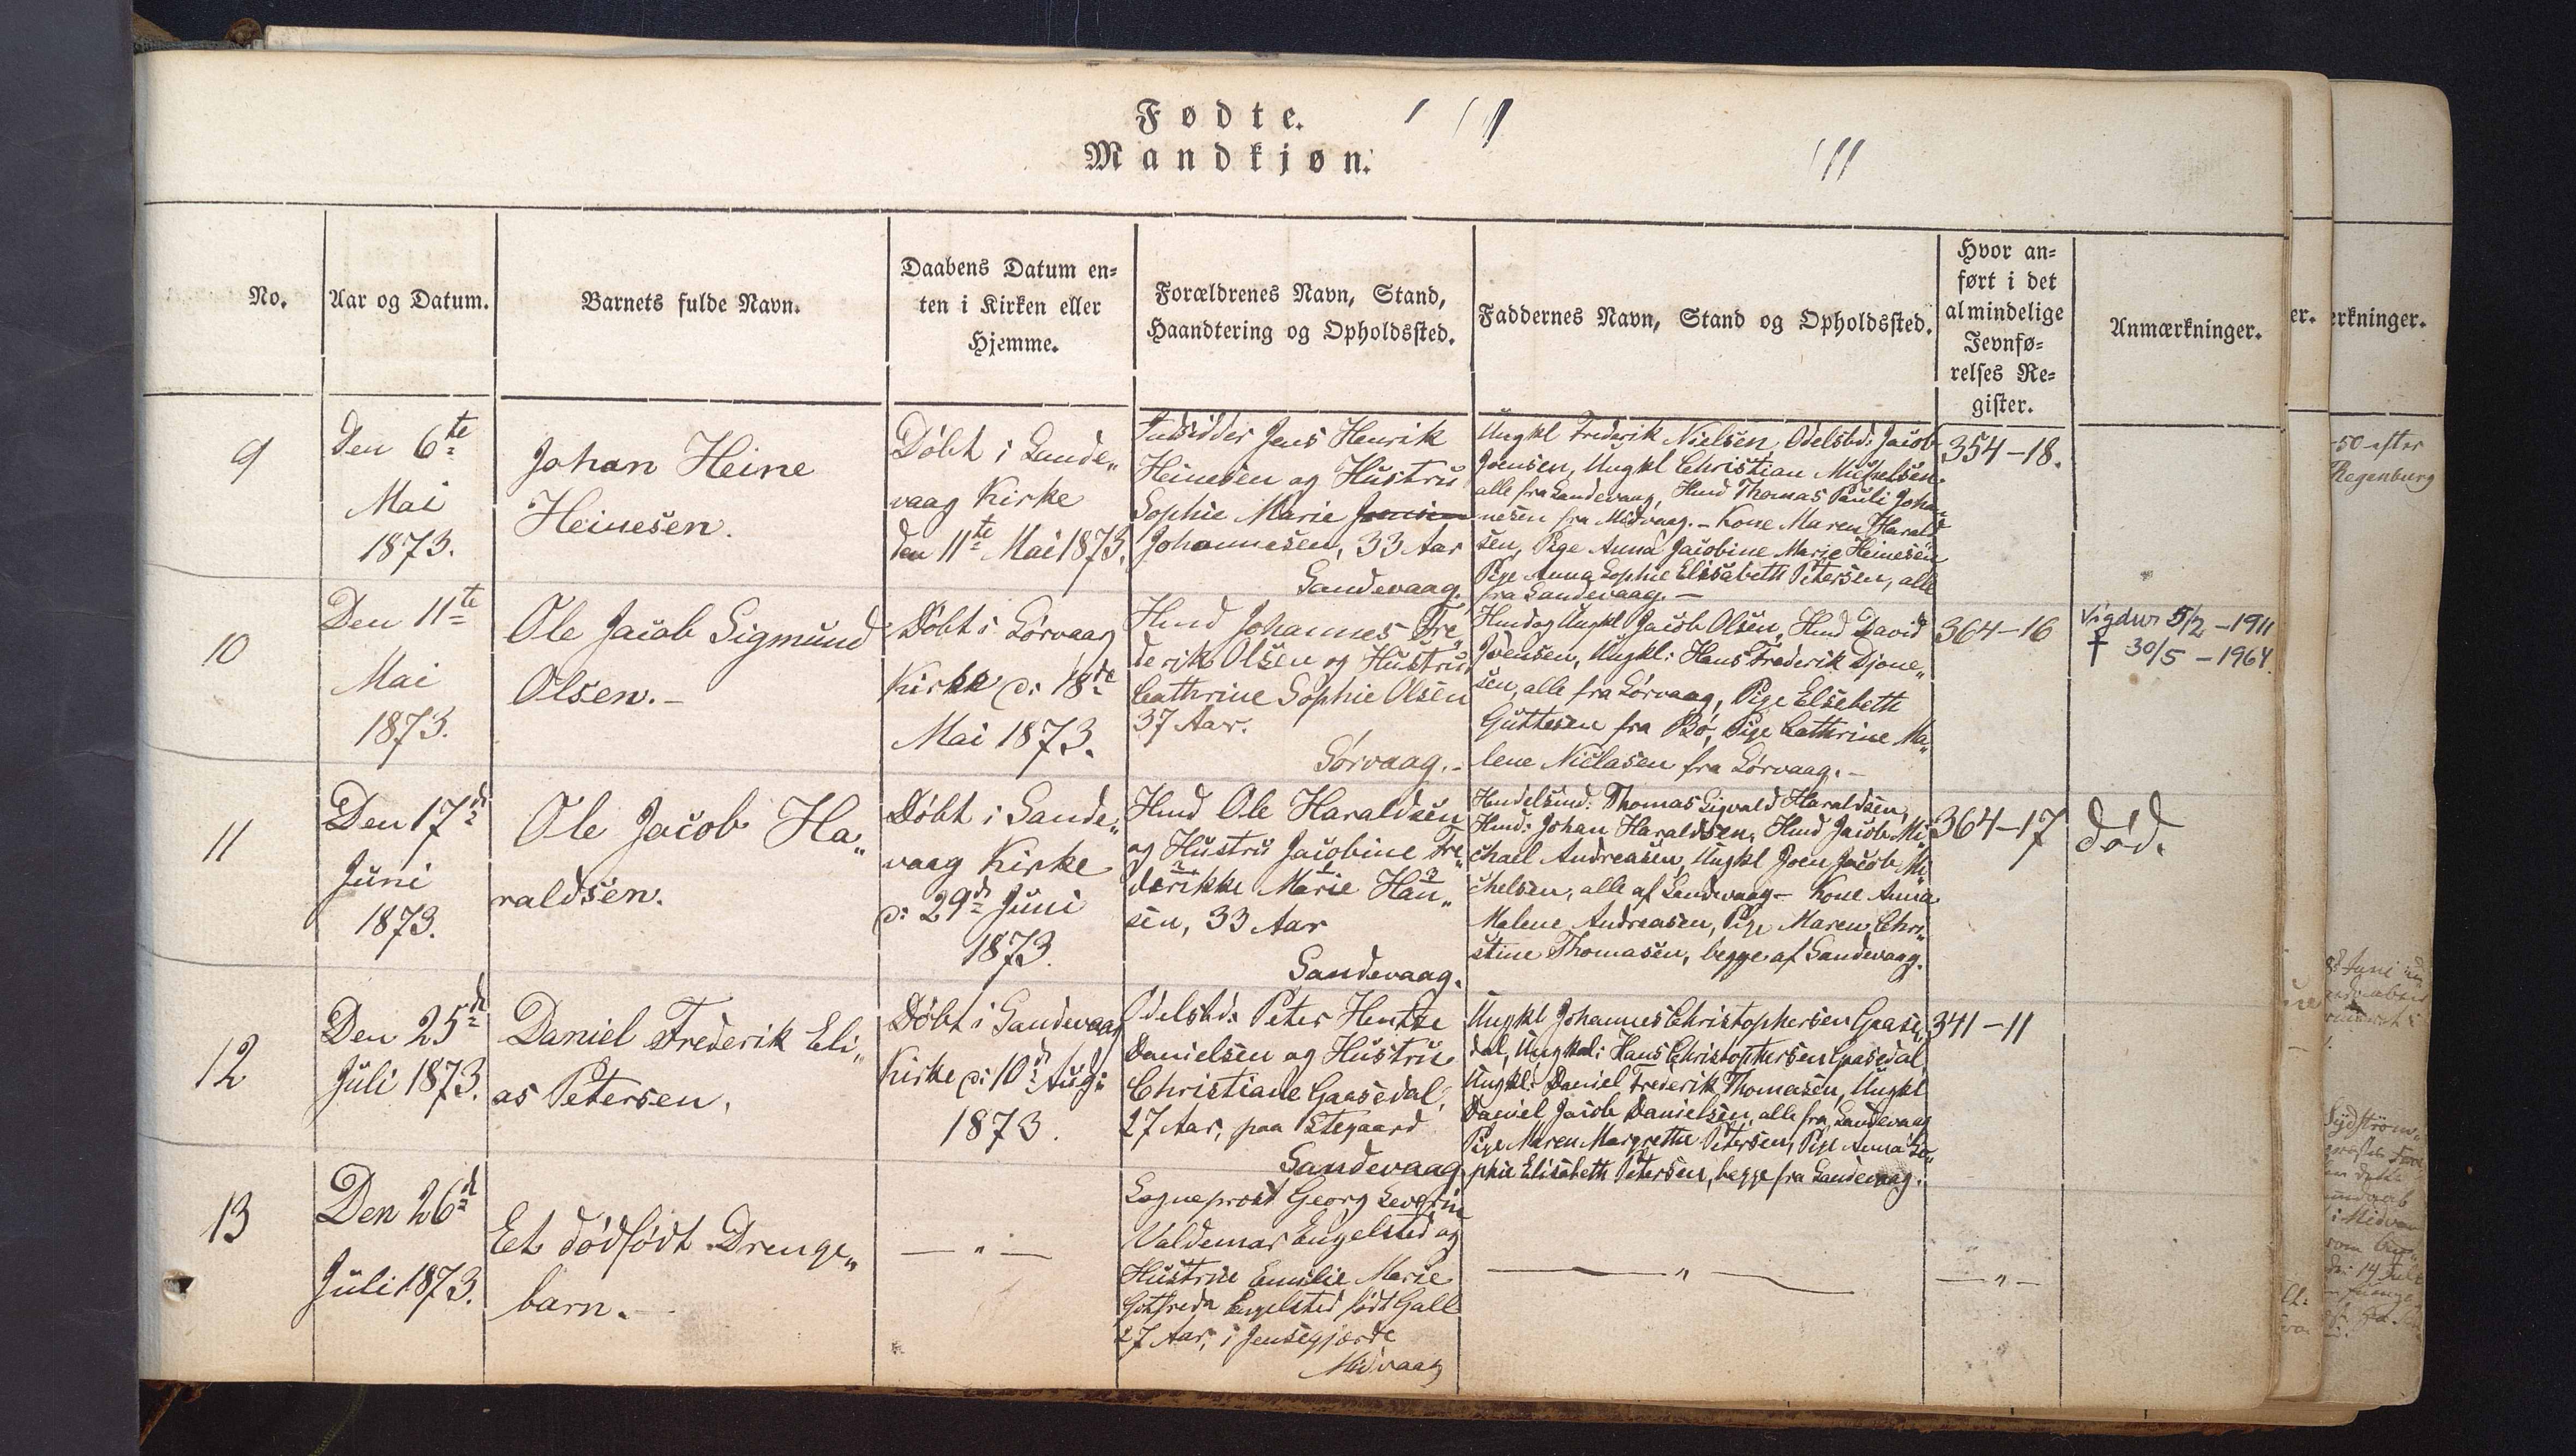 Fødte.
Mandkjøn.
No.
Aar og Datum.
Barnets fulde Navn.
Daabens Datum en-
ten i Kirken eller
Hjemme.
Forældrenes Navn, Stand,
Haandtering og Opholdssted.
Faddernes Navn, Stand og Opholdssted.
Hvor an-
ført i det
almindelige
Jevnfø-
relses Re-
gister.
Anmærkninger.
9
Den 6te
Mai
1873.
Johan Heine
Heinesen.
Døbt i Sande„
vaag Kirke
den 11te Mai 1873.
Indsidder Jens Henrik
Heinesen og Hustru
Sophie Marie Joensen
Johannesen, 33 Aar
Sandevaag.
Ungkl Frederik Nielsen, Odelsbd: Jacob
Joensen, Ungkl Christian Michelsen
alle fra Sandevaag, Hmd Thomas Pauli Joha„
nesen fra Midvaag. - Kone Maren Harald
sen, Pige Anna Jacobine Marie Heinesen
Pige Anna Sophie Elisabeth Petersen, alle
fra Sandevaag. -
354-18.
10
Den 11te
Mai
1873.
Ole Jacob Sigmund
Olsen. -
Døbt i Sørvaag
Kirke d: 18de
Mai 1873.
Hmd Johannes Fre„
derik Olsen og Hustru
Cathrine Sophie Olsen
37 Aar.
Sørvaag. -
Hmd og Ungkl Jacob Olsen, Hmd David
Joensen, Ungkl: Hans Frederik Djone„
sen, alle fra Sørvaag, Pige Elsebeth
Guttesen fra Bø, Pige Cathrine Ma„
lene Niclasen fra Sørvaag. -
364-16
Vigdur 5/2 - 1911
† 30/5 - 1964.
11
Den 17de
Juni
1873.
Ole Jacob Ha„
raldsen.
Døbt i Sande„
vaag Kirke
d: 29de Juni
1873.
Hmd Ole Haraldsen
og Hustru Jacobine Fre„
derikke Marie Han„
sen, 33 Aar
Sandevaag.
Thomas Sigvald Haraldsen,
Hmd: Johan Haraldsen, Hmd Jacob Mi
chael Andreasen, Ungkl Joen Jacob Mi
chelsen, alle af Sandevaag - Kone Anna
Malene Andreasen, Pige Maren Chri„
stine Thomasen, begge af Sandevaag.
364-17
død.
12
Den 25de
Juli 1873.
Daniel Frederik Eli„
as Petersen.
Døbt i Sandevaag
Kirke d: 10de Aug:
1873.
Odelsbd: Peter Hentze
Danielsen og Hustru
Christiane Gaasedal,
27 Aar, paa
Sandevaag
Ungkl Johannes Christophersen Gaase„
dal, Ungkl: Hans Christophersen Gaasedal,
Ungkl: Daniel Frederik Thomasen, Ungkl
Daniel Jacob Danielsen, alle fra Sandevaag
Pige Maren Margrethe Petersen, Pige Anna So„
phie Elisabeth Petersen, begge fra Sandevaag.
341-11
13
Den 26de
Juli 1873.
Et dødfødt Drenge„
barn. -
— „ —
Sogneprovst Georg Severin
Valdemar Engelsted og
Hustrue Emilie Marie
Gotfreda Engelsted født Gall
27 Aar, i Jensegjærde
Midvaag
— „ —
— „ —
er.
erkninger.
-50 efter
Regenburg